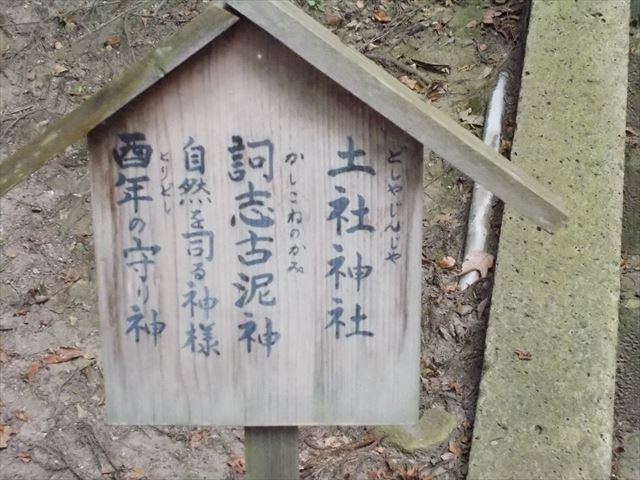 どしゃじんじゃ
土社神社
かしこねのかみ
訶志古泥神
自然を司る神様
とりどし
酉年の守り神